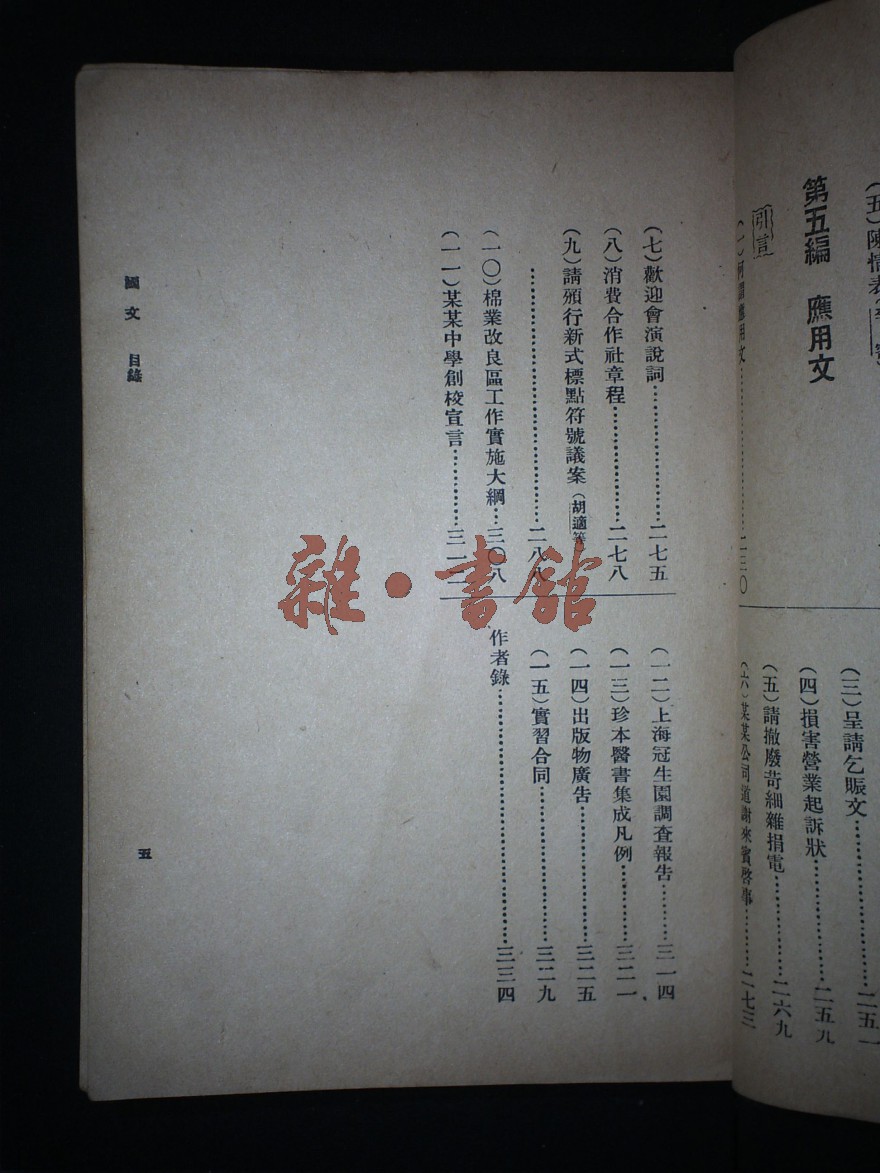 (五)陳情表
第五編 應用文
引言
(一)何謂應用文…………二三〇
(三)呈請乞賑文…………二五一
(四)損害營業起訴狀…………二五九
(五)請撤廢苛細雜捐電…………二六九
(六)某某公司道謝來賓啓事…………二七三
(七)歡迎會演說詞…………二七五
(八)消費合作社章程…………二七八
(九)請頒行新式標點符號議案(胡適等
…………二八八
(一〇)棉業改良區工作實施大綱…三〇八
(一一)某某中學創校宣言…………三一二
(一二)上海冠生園調查報告…………三一四
(一三)珍本醫書集成凡例…………三二一
(一四)出版物廣告…………三二五
(一五)實習合同…………三二九
作者錄…………三三四
國文 目錄
五
雜·書館